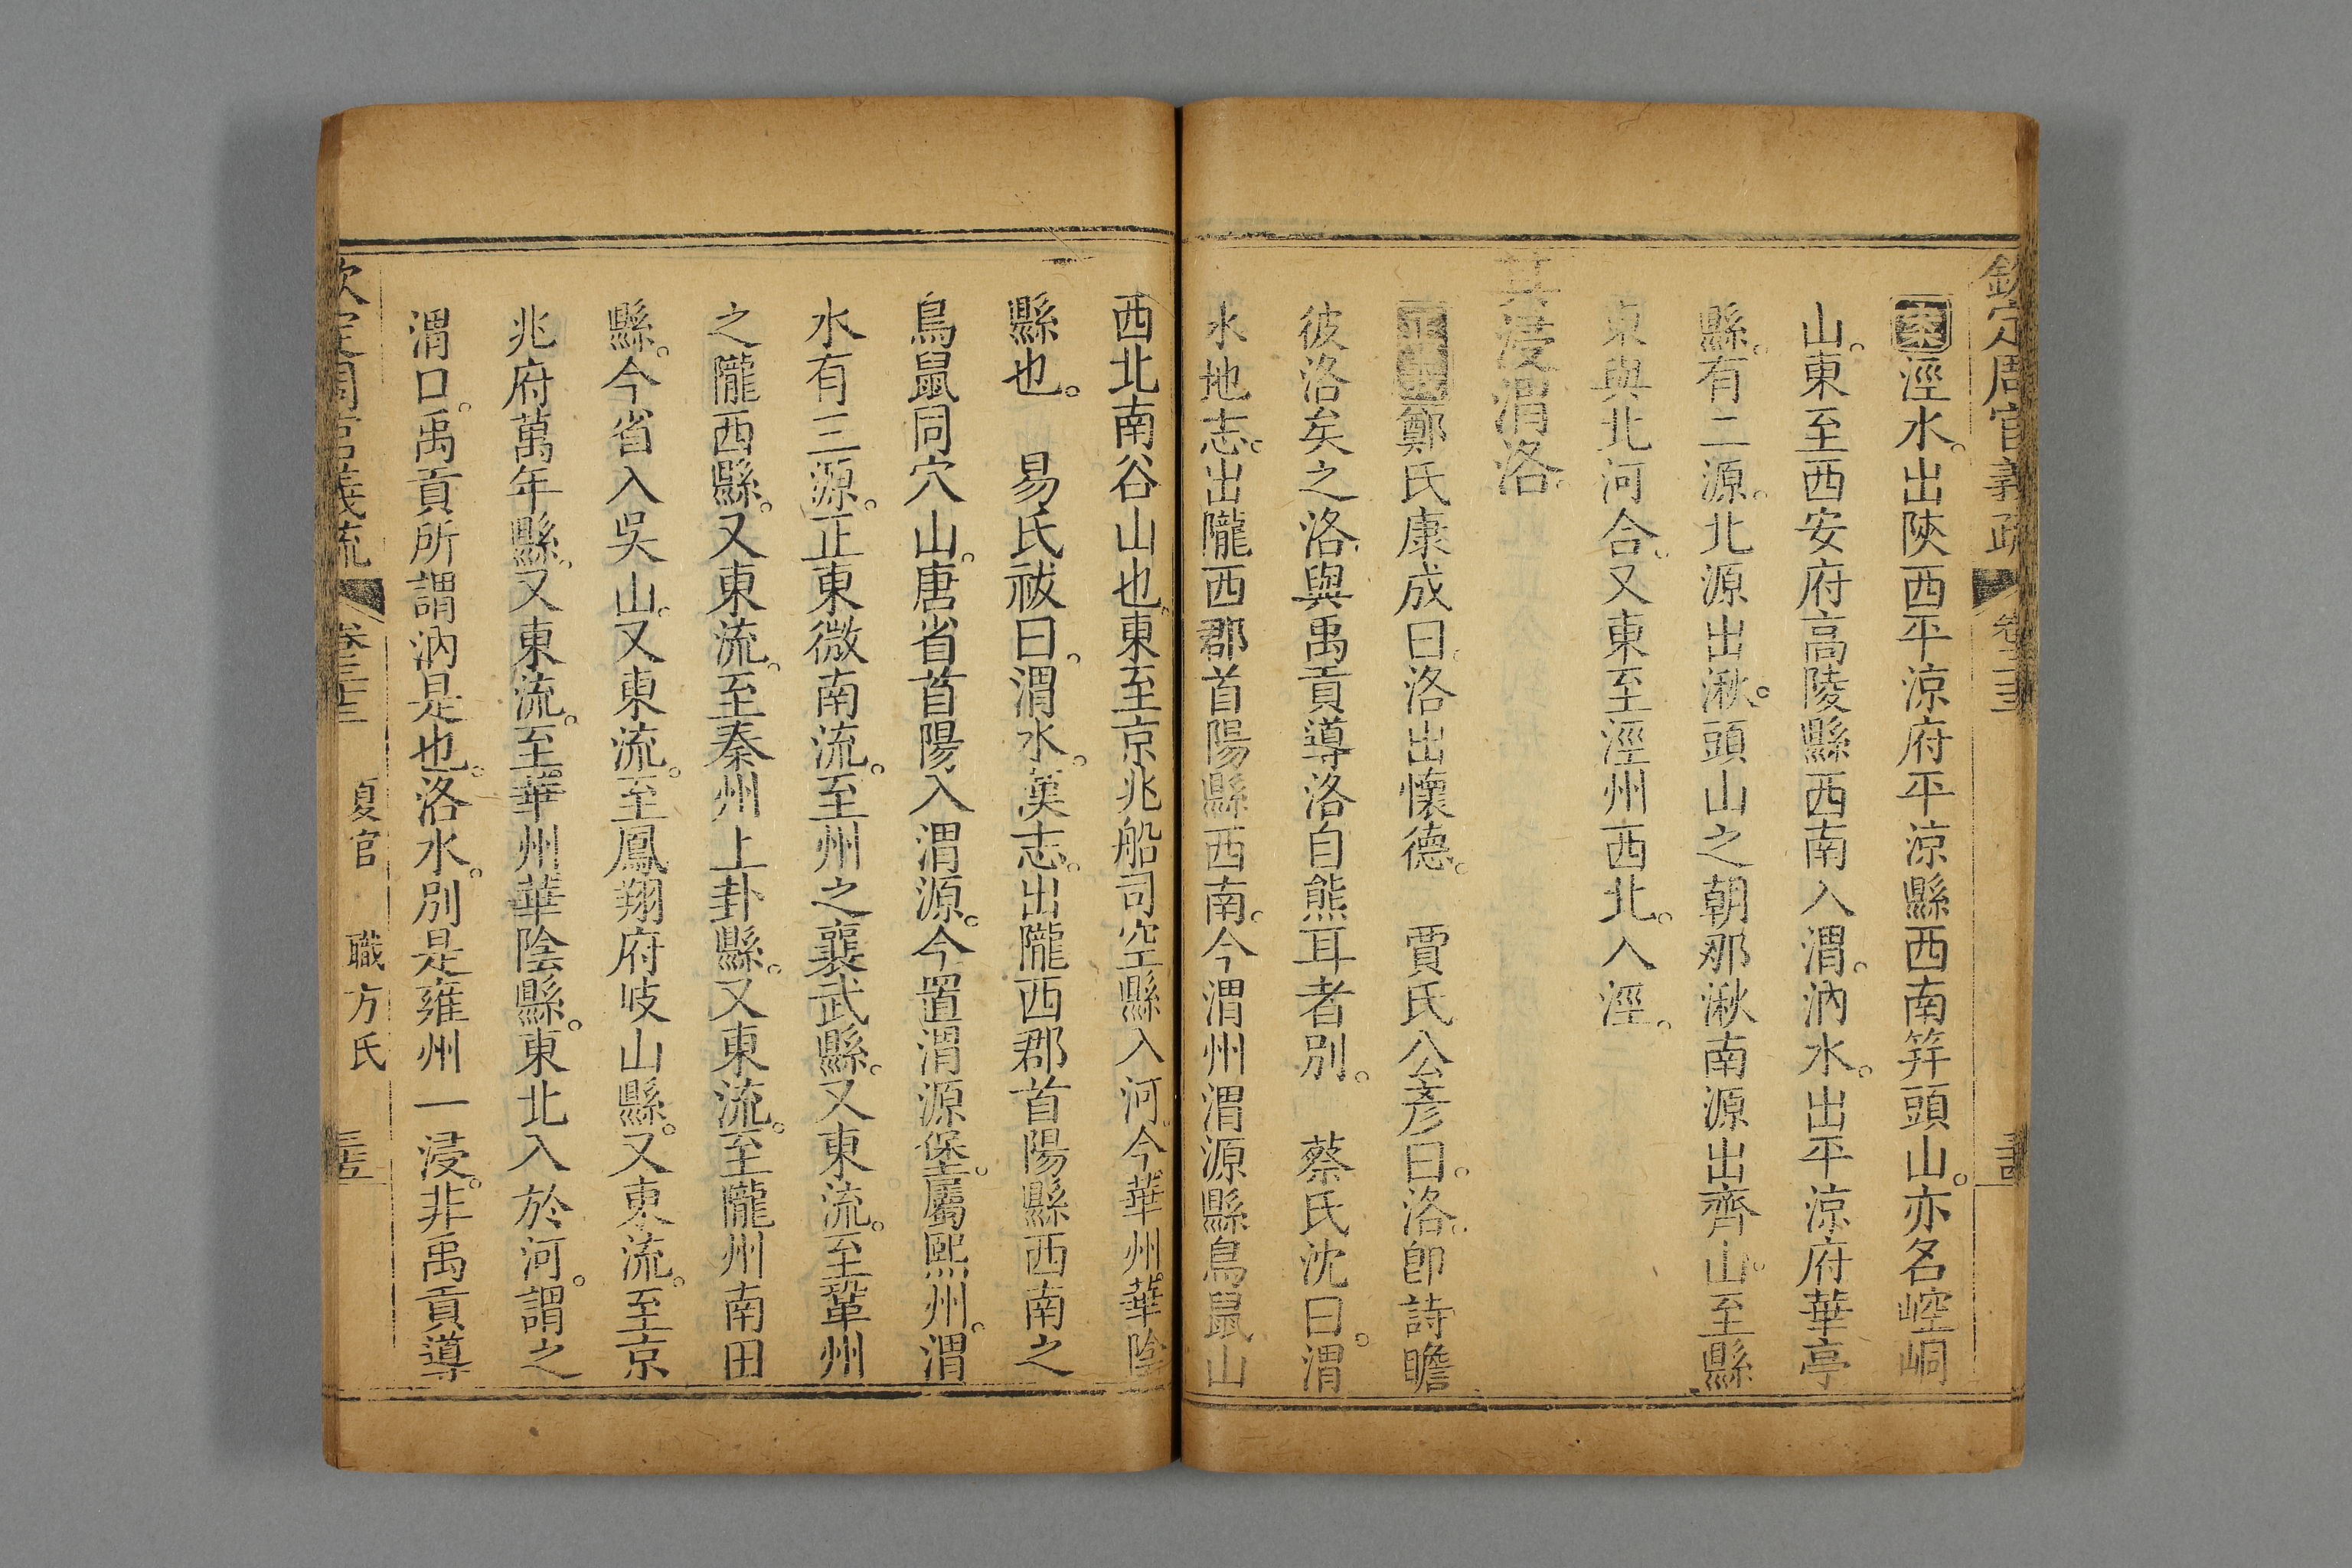 欽定周官義疏
案涇水。出陝西平涼府平涼縣西南筓頭山。亦名崆峒
山。東至西安府高陵縣西南入渭。汭水。出平涼府華亭
縣。有二源。北源出湫。頭山之朝那湫南源出齊山。至縣
東與北河合。又東至涇州西北。入涇。
其浸渭洛。
鄭氏康成曰。洛出懷德。 賈氏公彥曰。洛。卽詩瞻
彼洛矣之洛。與禹貢導洛自熊耳者別。 蔡氏沈曰。渭
水地志。出隴西郡首陽縣西南。今渭州渭源縣鳥鼠山
西北南谷山也。東至京兆船司空縣入河。今華州華陰
縣也。 易氏祓曰。渭水。漢志。出隴西郡首陽縣西南之
鳥鼠同穴山。唐省首陽入渭源。今置渭源堡。屬熙州。渭
水有三源。正東微南流。至州之襄武縣。又東流。至鞏州
之隴西縣。又東流。至秦州上卦縣。又東流。至隴州南田
縣。今省入吳山。又東流。至鳳翔府岐山縣。又東流。至京
兆府萬年縣。又東流。至華州華陰縣。東北入於河。謂之
渭口。禹貢所謂汭是也。洛水。別是雍州一浸。非禹貢導
夏官 職方氏